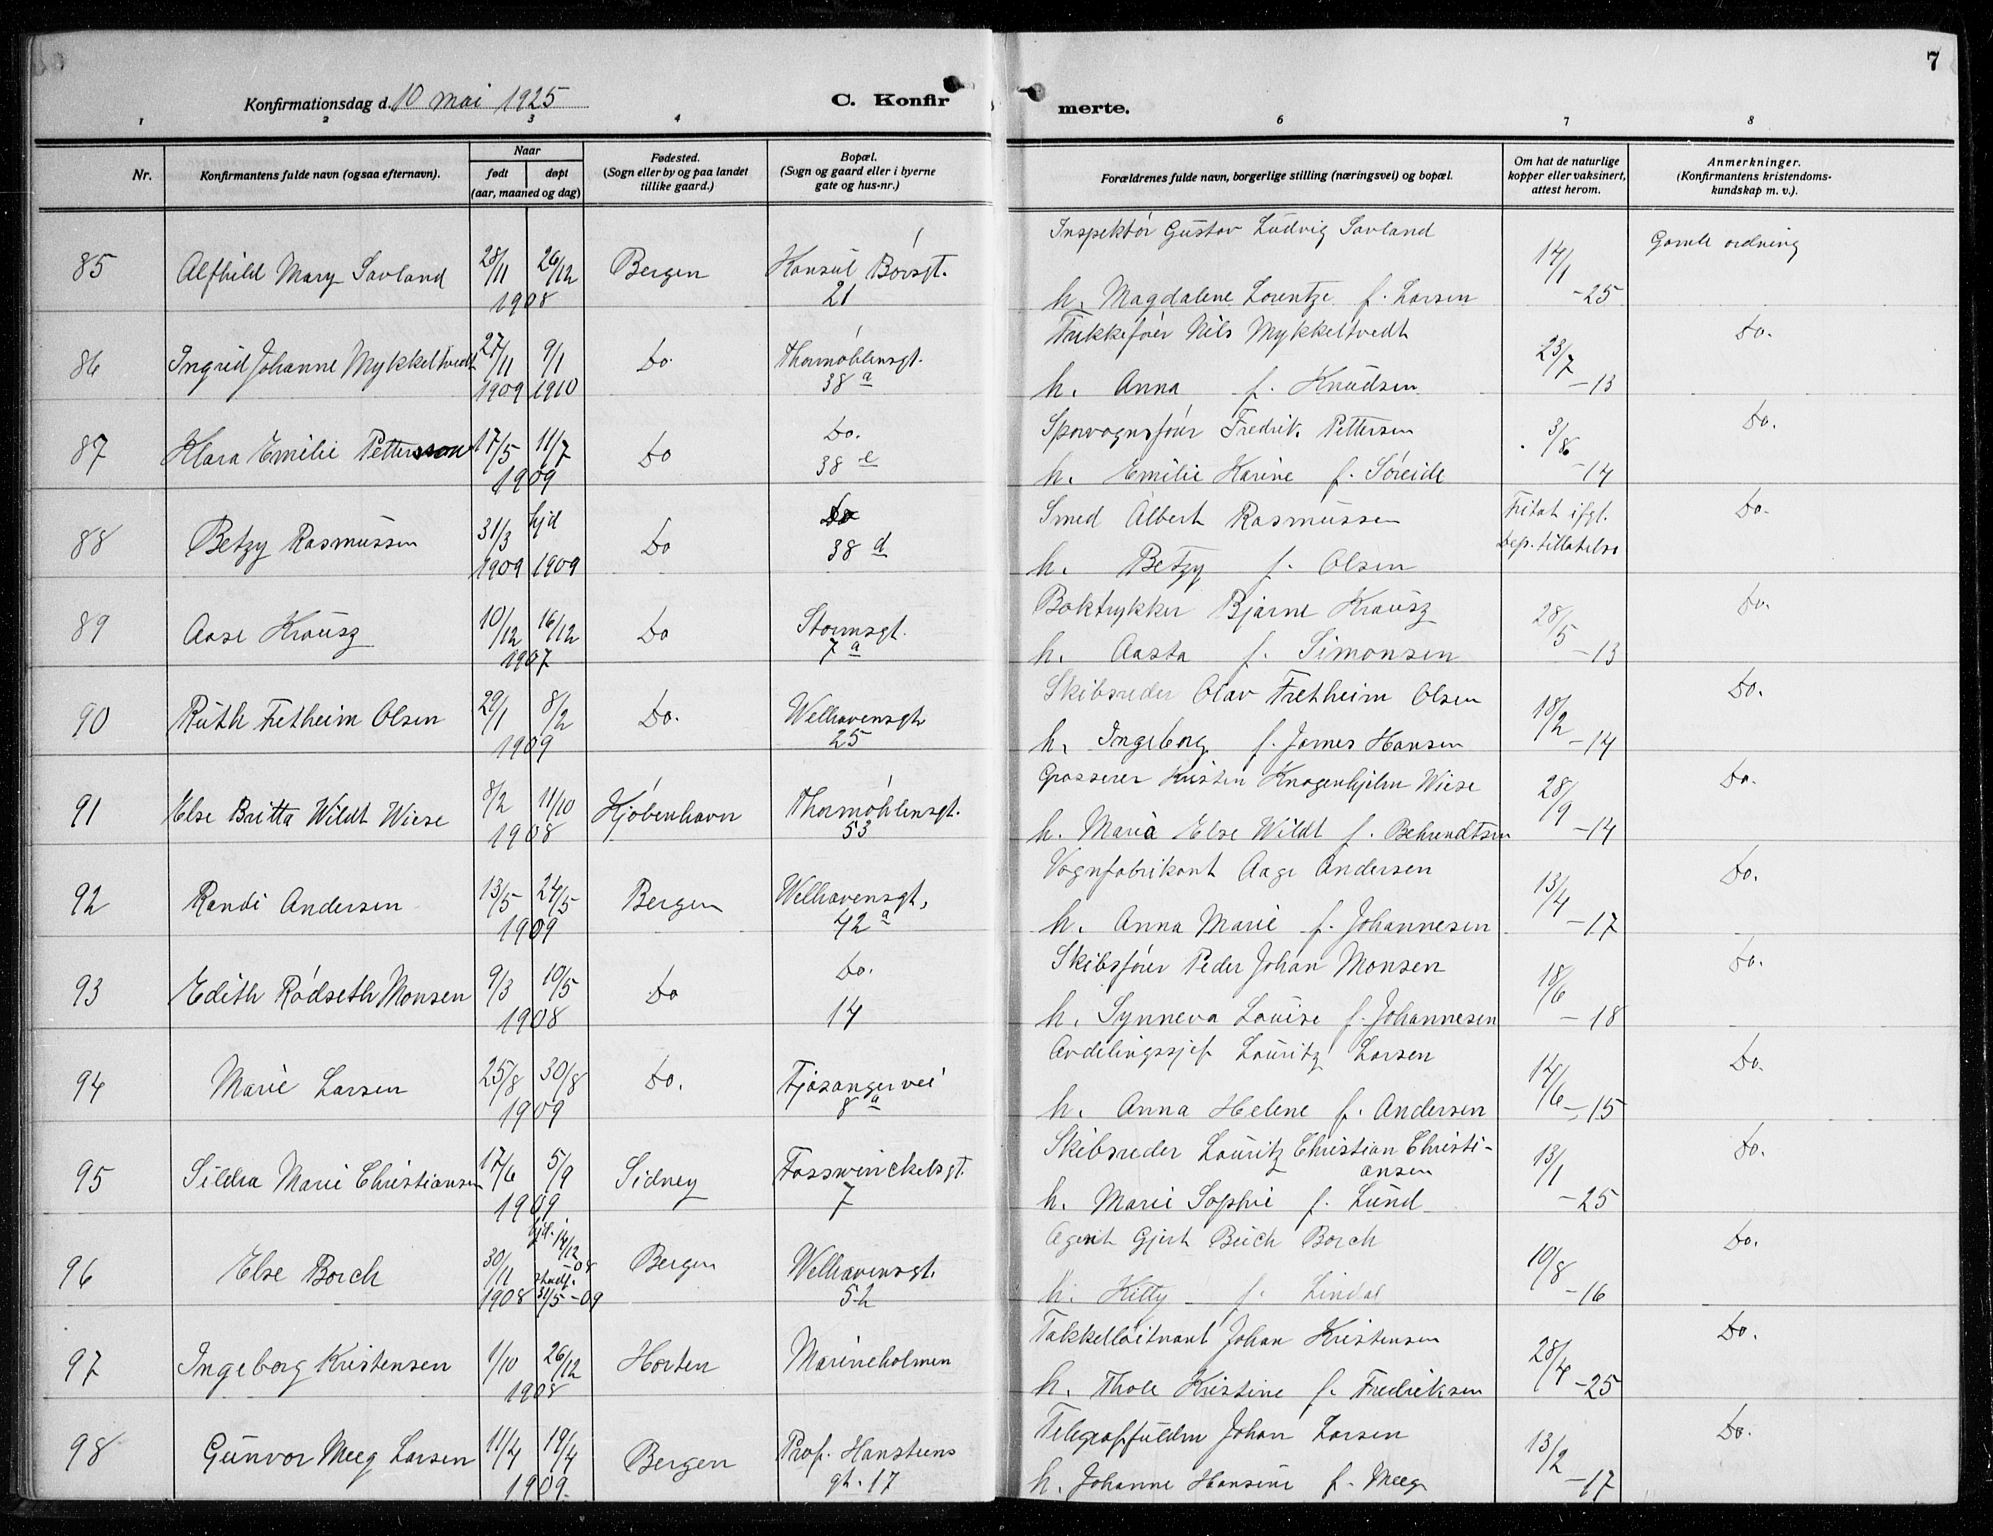 7
Konfirmationsdag d. 10 mai 1925
C. Konfirmerte.
1 2 3 4 6 7 8
Nr.
Konfirmantens fulde navn (ogsaa efternavn).
Naar
født døpt
(aar, maaned og dag)
Fødested.
(Sogn eller by og paa landet
tillike gaard.)
Bopæl.
(Sogn og gaard eller i byerne
gate og hus-nr.)
Forældrenes fulde navn, borgerlige stilling (næringsvei) og bopæl.
Om hat de naturlige
kopper eller vaksinert,
attest herom.
Anmerkninger.
(Konfirmantens kristendoms-
kundskap m. v.).
Inspektör Gustav Ludvig Savland
85 Alfhild Mary Savland 28/11 26/12 Bergen Konsul Börsgt. 14/1 Gamle ordning
1908 21 h. Magdalene Lorentze f. Larsen -25
Trikkefórer Nils Mykkeltvedt
86 Ingrid Johanne Mykkeltvedt 27/11 9/1 Do. Thormöhlensgt. 23/7 Do.
1909 1910 38 a h. Anna f. Knudsen -13
Sporvognsfórer Fredrik Pettersen
87 Klara Emilie Petterson 17/5 11/7 Do Do. 3/8 Do.
1909 38 e h. Emilie Karine f. Söreide -14
Smed Albert Rasmussen Fritat ifgl.
88 Betzy Rasmussen 31/3 hjd Do Do Dep. tillatelse Do.
1909 1909 38 d h. Betzy f. Olsen
Boktrykker Bjarne Krausz
89 Aase Krausz 10/12 16/12 Do Stormsgt. 28/5 Do.
1907 7 a h. Aasta f. Simonsen -13
Skibsreder Olav Fretheim Olsen
90 Ruth Fretheim Olsen 29/1 8/2 Do. Welhavensgt 18/2 Do.
1909 25 h. Ingeborg f. James Hansen -14
Grosserer Kristen Knagenhjelm Wiese
91 Else Britta Wildt Wiese 8/2 11/10 Kjöbenhavn Thormöhlensgt. 28/9 Do.
1908 53 h. Maria Else Wildt f. Behrendtsen -14
Vognfabrikant Aage Andersen
92 Randi Andersen 13/5 24/5 Bergen Welhavensgt. 13/4 Do.
1909 42 a h. Anna Marie f. Johannesen -17
Skibsfórer Peder Johan Monsen
93 Edith Rödseth Monsen 9/3 10/5 Do Do. 18/6 Do.
1908 14 h. Synneva Louise f. Johannesen -18
Avdelingssjef Lauritz Larsen
94 Marie Larsen 25/8 30/8 Do. Fjøsangervei 14/6 Do.
1909 8 a h. Anna Helene f. Andersen -15
Skibsreder Lauritz Christian Christi-
ansen
95 Marie Christiansen 17/6 5/9 Sidney Fosswinckelsgt. 13/1 Do.
1909 7 h. Marie Sophie f. Lund -25
Agent Gjert Buch Borch
96 Else Borch 30/11 hjd. 14/12 -08 Bergen Welhavensgt. 10/8 Do.
1908 stadf. 31/5 -09 52 h. Kitty f. Lindal -16
Takkelloitnant Johan Kristensen
97 Ingeborg Kristensen 1/10 26/12 Horten Marineholmen 28/4 Do.
1908 h. Thole Kristine f. Fredriksen -25
Johan Larsen
98 Gunvor Meeg Larsen 11/4 19/4 Bergen Prof. Hansteens 13/2 Do.
1909. gt. 17 h. Johanne Hansine f. Meeg -17